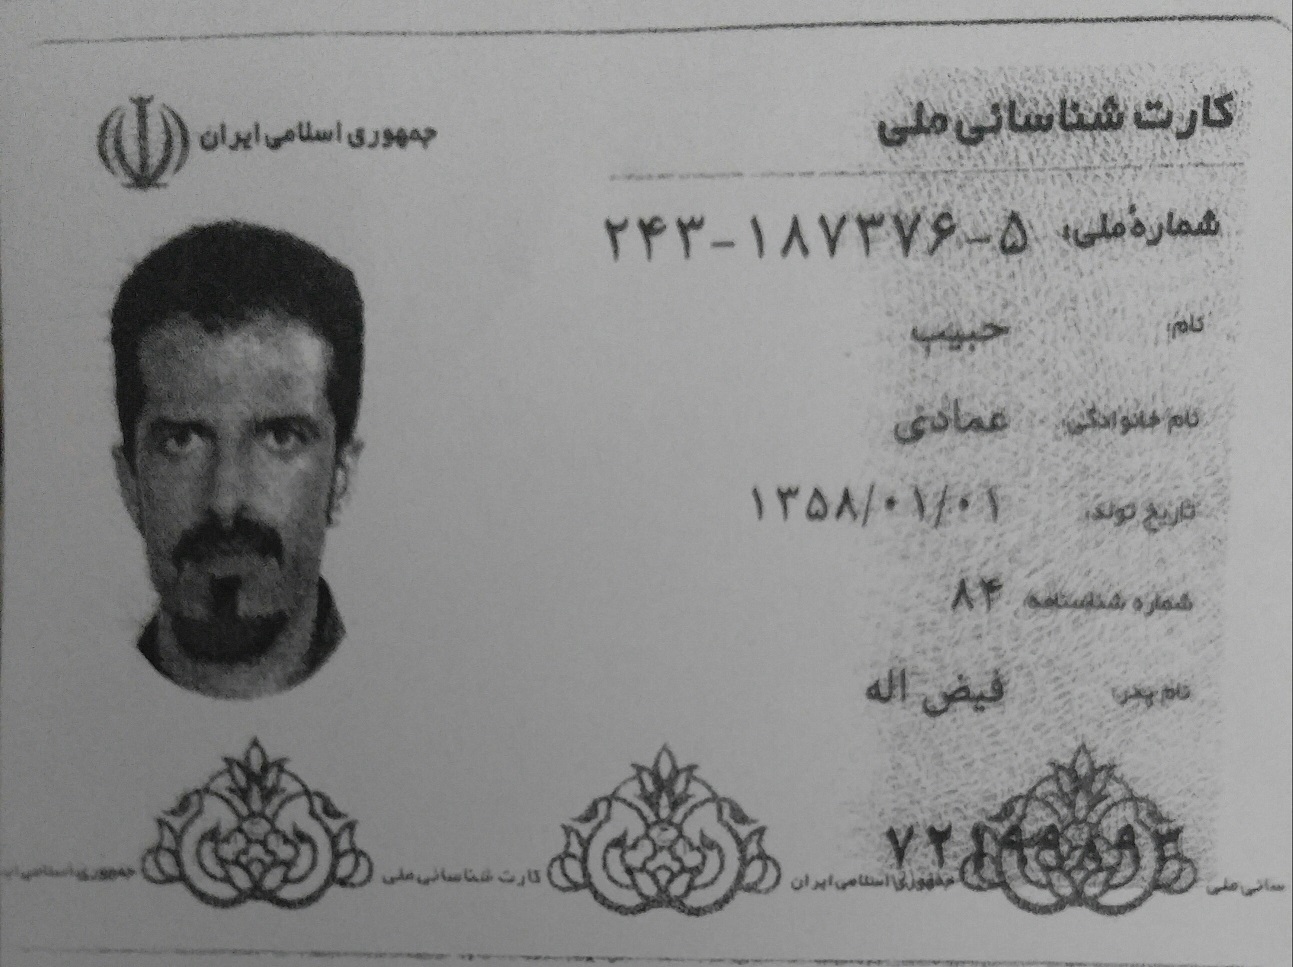 کارت شناسائی ملی
جمهوری اسلامی ایران
شمارهٔ ملی: ۲۴۳-۱۸۷۳۷۶-۵
نام: حبیب
نام خانوادگی: عمادی
تاریخ تولد: ۱۳۵۸/۰۱/۰۱
شماره شناسنامه: ۸۴
نام پدر: فیض اله
جمهوری اسلامی ایران کارت شناسائی ملی جمهوری اسلامی ایران